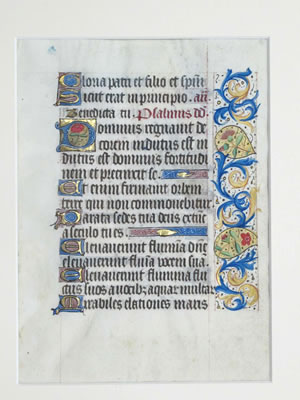 Gloria patri et filio et spiri
Sicut erat in principio. an̄.
Benedicta tu. Psalmus dd
Dominus regnauit de
corem indutus est in
dutus est dominus fortitudi
nem et precinxit se.
Et enim firmauit orbem
terre qui non commouebitur
Parata sedes tua deus extūc
a seculo tu es.
Eleuauerunt flumina dn̄e
eleuauerunt flumīa vocem suā.
Eleuauerunt flumina fluc
tus suos a uocibꝫ aquar multar
Mirabiles elationes maris